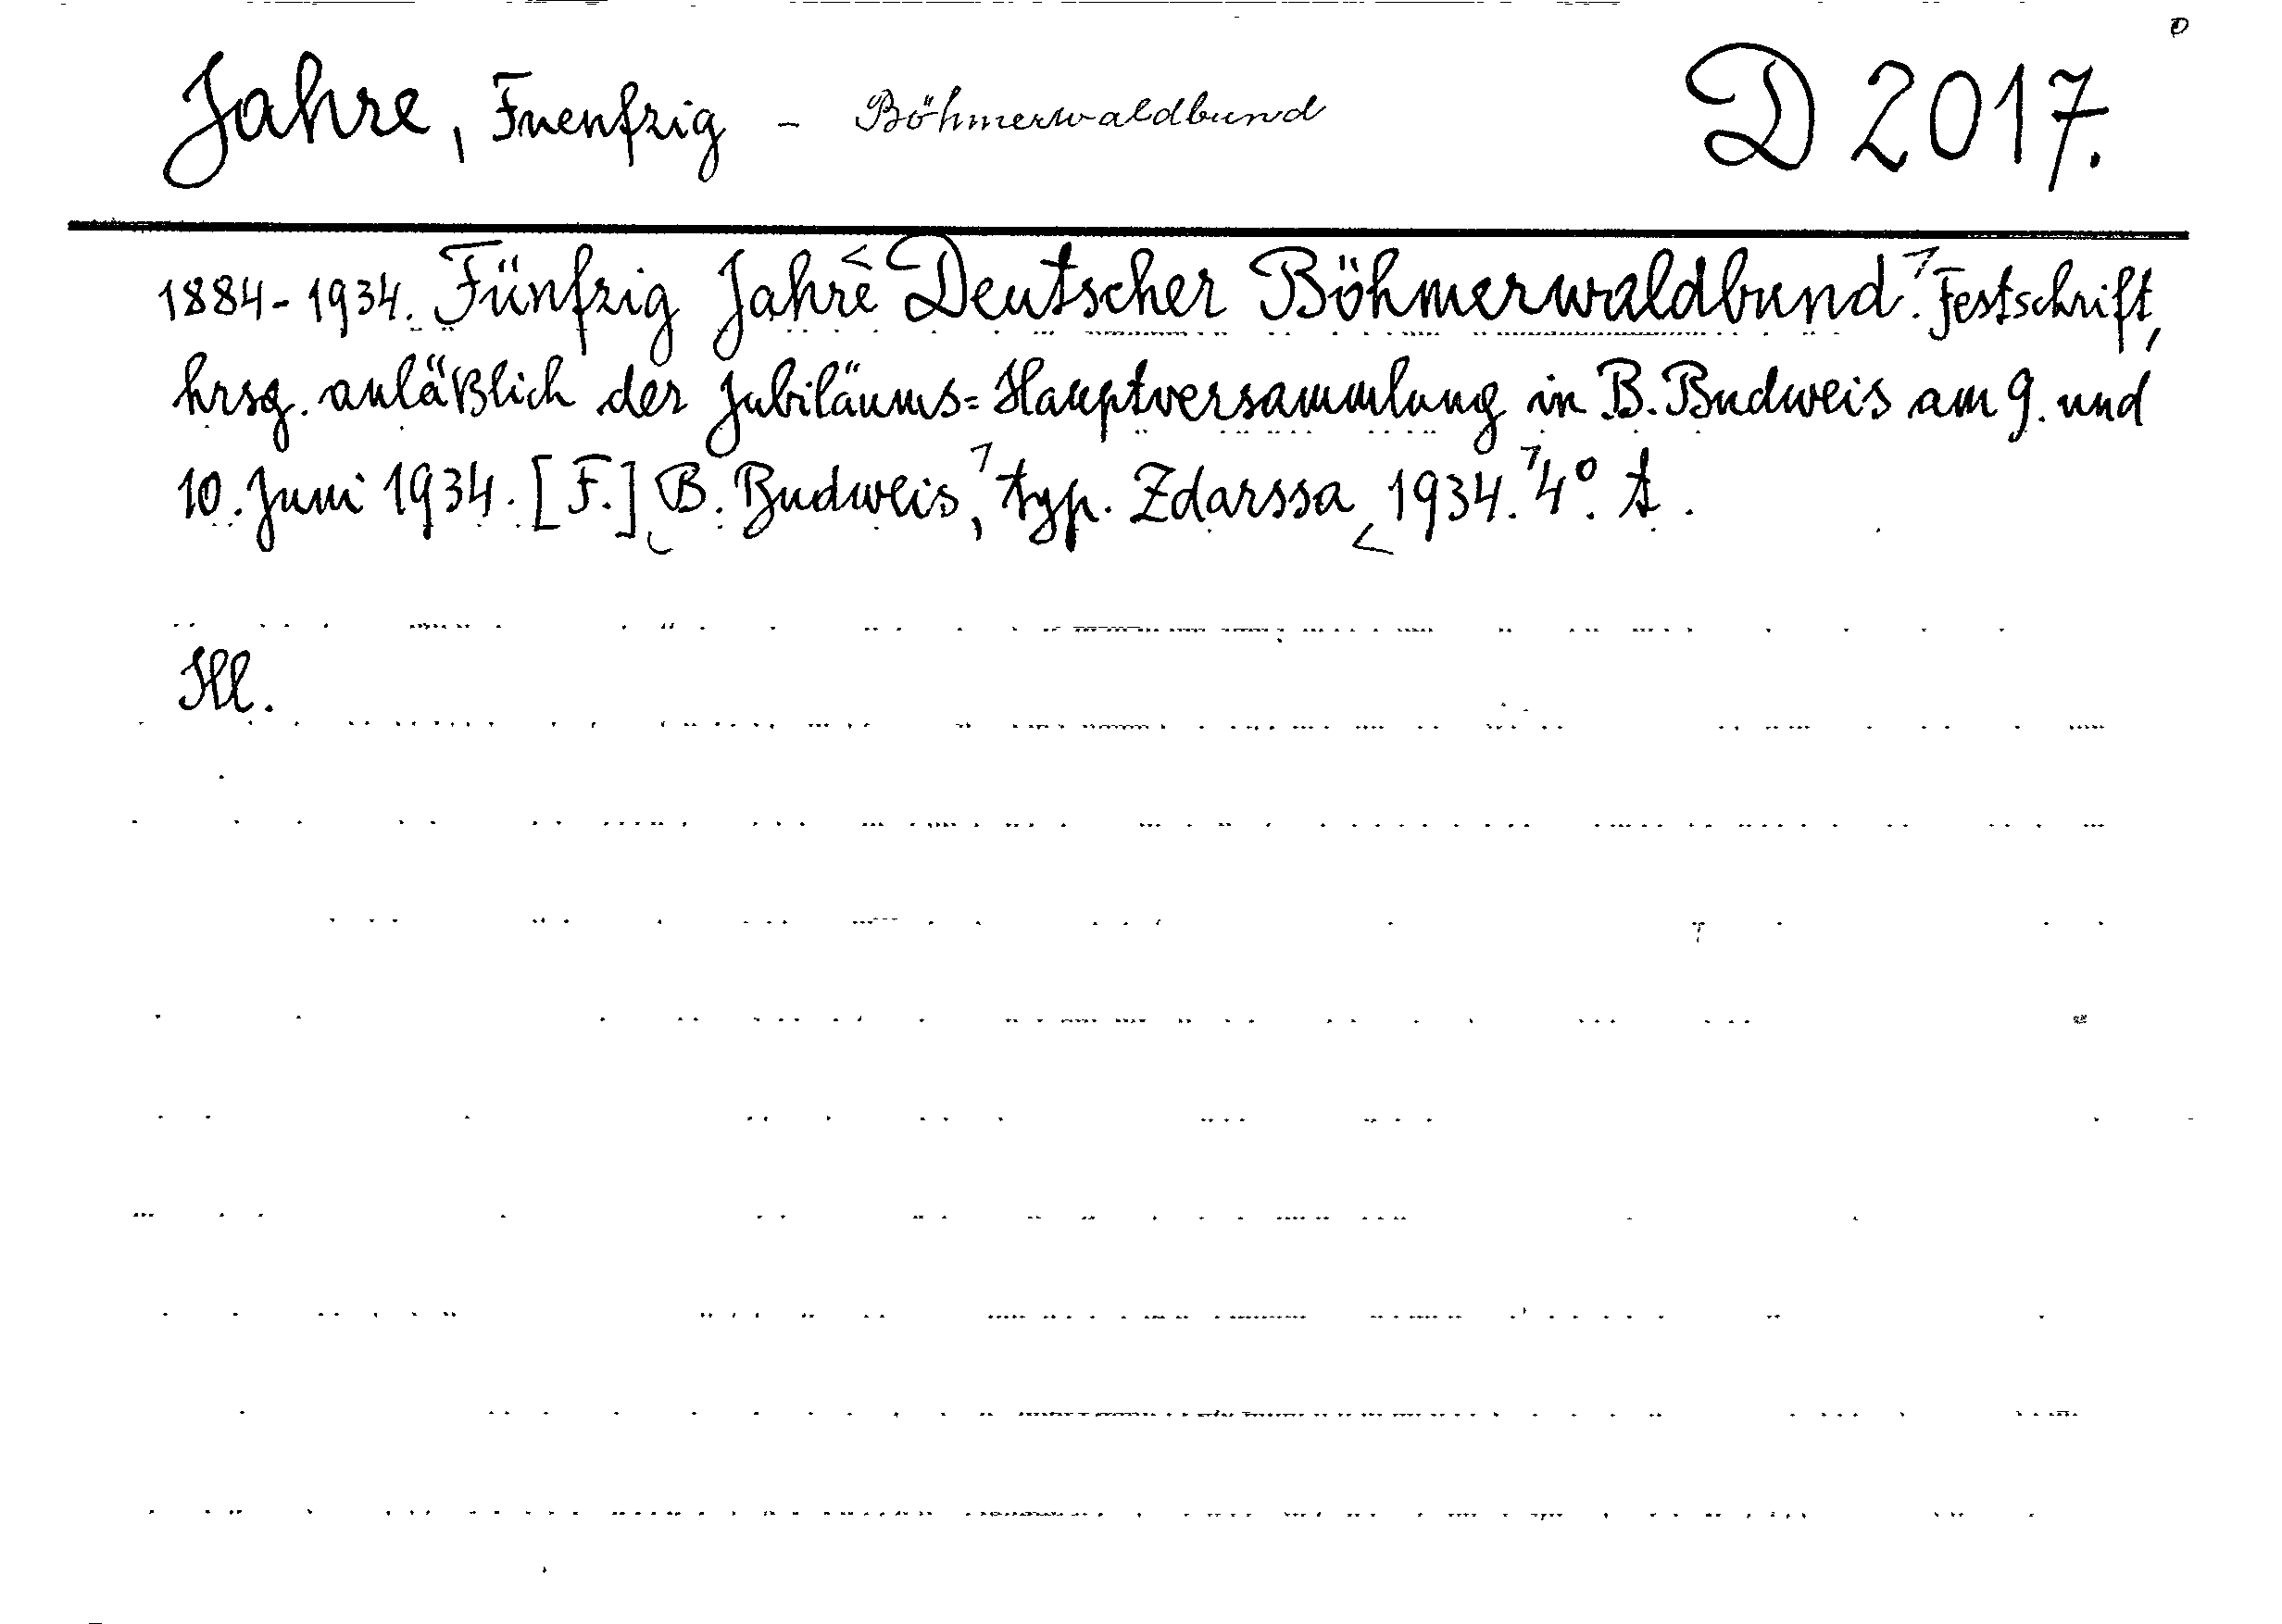 Jahre, Fuenfzig - Böhmerwaldbund D 2017.
1884-1934. Fünfzig Jahre Deutscher Böhmerwaldbund. Festschrift,
hrsg. anläßlich der Jubiläums=Hauptversammlung in B. Budweis am 9. und
10. Juni 1934. [F.] B. Budweis, typ. Zdarssa 1934. 4°.
Ill.